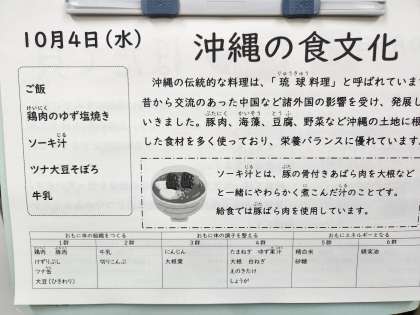 10月4日(水)
沖縄の食文化
ご飯
鶏肉のゆず塩焼き
ソーキ汁
ツナ大豆そぼろ
牛乳
沖縄の伝統的な料理は、「琉球料理」と呼ばれていま
昔から交流のあった中国など諸外国の影響を受け、発展し
いきました。豚肉、海藻、豆腐、野菜など沖縄の土地に根
した食材を多く使っており、栄養バランスに優れています
ソーキ汁とは、豚の骨付きあばら肉を大根など
と一緒にやわらかく煮こんだ汁のことです。
給食では豚ばら肉を使用しています。
おもに体の組織をつくる おもに体の調子を整える おもにエネルギーとなる
1群 2群 3群 4群 5群 6群
鶏肉 豚肉 牛乳 にんじん たまねぎ ゆず果汁 精白米
けずりぶし 切りこんぶ 大根葉 大根 白ねぎ 砂糖
ツナ缶 えのきたけ
大豆(ひきわり) しょうが